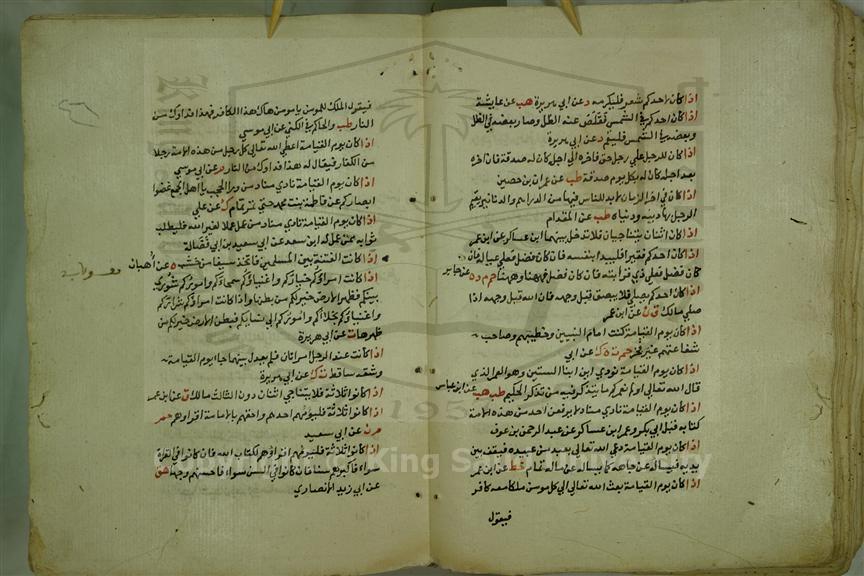 اذا كان لاحدكم شعر فليكرمه د عن ابي هريرة هب عن عايشة
اذا كان احدكم في الشمس فقلص عنه الظل وصار بعضه في الظل
وبعضه في الشمس فليقم د عن ابي هريرة
اذا كان للرجل على رجل حق فاخره الى اجل كان له صدقة فان اخره
بعد اجله كان له بكل يوم صدقة طب عن عمران بن حصين
اذا كان في اخر الزمان لابد للناس فيها من الدراهم والدنانير يقيم
الرجل بها دينه ودنياه طب عن المقدام
اذا كان اثنان يتناجيان فلا تدخل بينهما ابن عساكر عن ابن عمر
اذا كان احدكم فقيرا فليبدا بنفسه فان كان فضل فعلى عياله فان
كان فضل فعلى ذي قرابته فان كان فضل فههنا وههنا حم م د ن عن جابر
اذا كان احدكم يصلي فلا يبصق قبل وجهه فان الله قبل وجهه اذا
صلى مالك ق ن عن ابن عمر
اذا كان يوم القيامة كنت امام النبيين وخطيبهم وصاحب
شفاعتهم غير فخر حم ت ه ك عن ابي
اذا كان يوم القيامة نودي اين ابنا الستين وهو العمر الذي
قال الله تعالى اولم نعمركم ما يتذكر فيه من تذكر الحكيم طب هب عن ابن عباس
اذا كان يوم القيامة نادى مناد لا يرفعن احد من هذه الامة
كتابه قبل ابي بكر وعمر ابن عساكر عن عبد الرحمن بن عوف
اذا كان يوم القيامة دعى الله تعالى بعبد من عبيده فيقف بين
يديه فيساله عن جاهه كما يساله عن ماله تمام خط عن ابن عمر
اذا كان يوم القيامة بعث الله تعالى الى كل مومن ملكا معه كافر
فيقول
فيقول الملك للمومن يا مومن هاك هذا الكافر فهذا فداوك من
النار طب والحاكم في الكنى عن ابي موسى
اذا كان يوم القيامة اعطى الله تعالى كل رجل من هذه الامة رجلا
من الكفار فيقال له هذا فداوك من النار م عن ابي موسى
اذا كان يوم القيامة نادى مناد من ورا الحجب يا اهل الجمع غضوا
ابصاركم عن فاطمة بنت محمد حتى تمر تمام ك عن علي
اذا كان يوم القيامة نادى مناد من عمل عملا لغير الله فليطلب
ثوابه ممن عمل له ابن سعد عن ابي سعيد بن ابي فضالة
اذا كانت الفتنة بين المسلمين فاتخذ سيفا من خشب ه عن اهبان
اذا كانت امراؤكم خياركم واغنياؤكم سمحاؤكم واموركم شورى
بينكم فظهر الارض خير لكم من بطنها واذا كانت امراؤكم شراركم
واغنياؤكم بخلاءكم واموركم الى نسايكم فبطن الارض خير لكم من
ظهرها ت عن ابي هريرة
اذا كانت عند الرجل امراتان فلم يعدل بينهما جا يوم القيامة
وشقه ساقط ت ك عن ابي هريرة
اذا كانوا ثلاثة فلا يتناجى اثنان دون الثالث مالك ق عن ابن عمر
اذا كانوا ثلاثة فليؤمهم احدهم واحقهم بالامامة اقراوهم حم
م ن عن ابي سعيد
اذا كانوا ثلاثة فليؤمهم اقراؤهم لكتاب الله فان كانوا في القراة
سواء فاكبرهم سنا فان كانوا في السن سواء فاحسنهم وجها هق
عن ابي زيد الانصاري